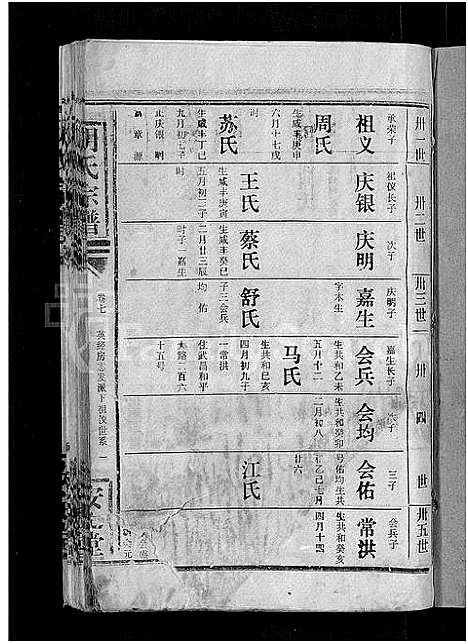 卅一世
承荣子
祖义
生咸丰庚申
六月十七戌
时
周氏
生咸丰丁巳
九月初七
时
苏氏
子庆银 明
卅二世
祖仪长子
庆银
王氏
生咸丰庚寅
五月初三子
时
次子
庆明
蔡氏
生咸丰癸巳
二月廿三辰
时子一嘉生
卅三世
庆明子
嘉生
字木生
舒氏
子三会兵
均 佑
卅四世
嘉生长子
会兵
生共和乙未
五月十二
马氏
生共和己亥
四月初九子
一常洪
住武昌和平
大路一百六
十五号
次子
会均
生共和癸卯
二月初八
三子
会佑
号佑均生共
和乙巳七月
廿六
江氏
卅五世
会兵子
常洪
生共和癸亥
四月十四
氏宗谱
卷七
英经房志发派下祖汶世系
一
堂